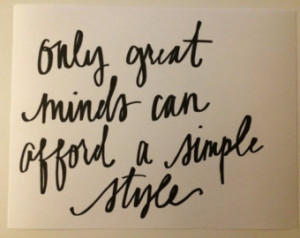 only great
minds can
afford a simple
style